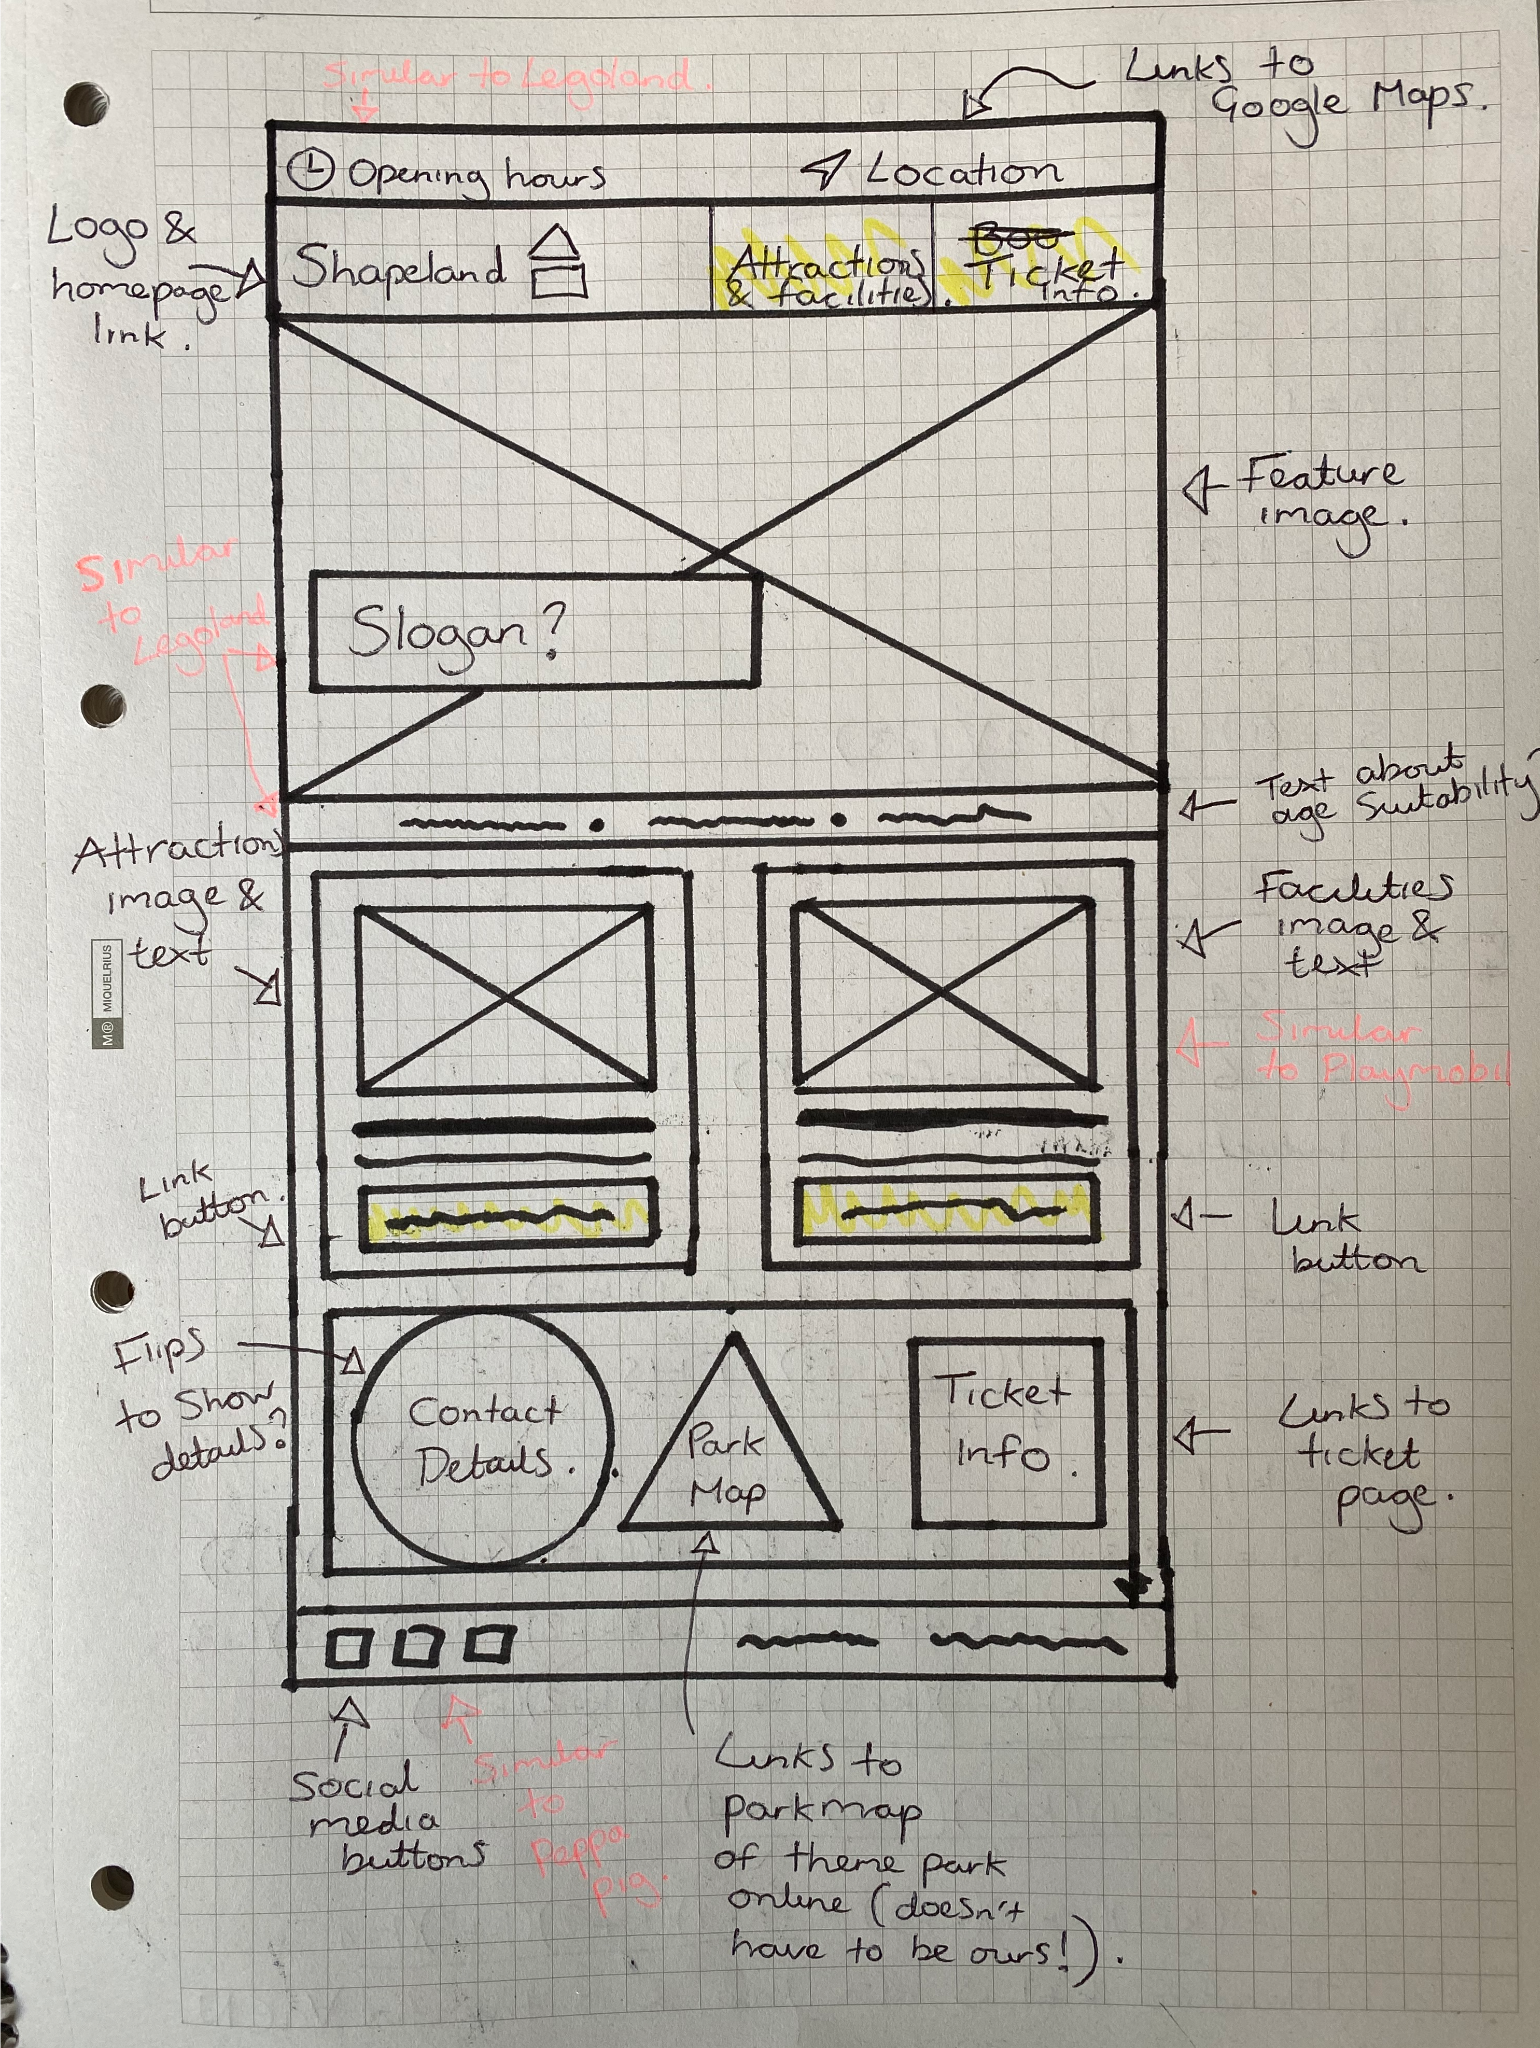 Similar to Legoland.
Links to
Google Maps.
Opening hours
Location
Logo &
homepage
link.
Shapeland
Attractions
& facilities.
Boo
Ticket
info.
Feature
image.
Similar
to
Legoland
Slogan?
Text about
age suitability?
Attraction
image &
text
Facilities
image &
text
M® MIQUELRIUS
Similar
to Playmobil
Link
button.
Link
button
Flips
to show
details?
Contact
Details.
Park
Map
Ticket
Info.
Links to
ticket
page.
Social
media
buttons
Similar
to
Peppa
pig.
Links to
parkmap
of theme park
online (doesn't
have to be ours!).